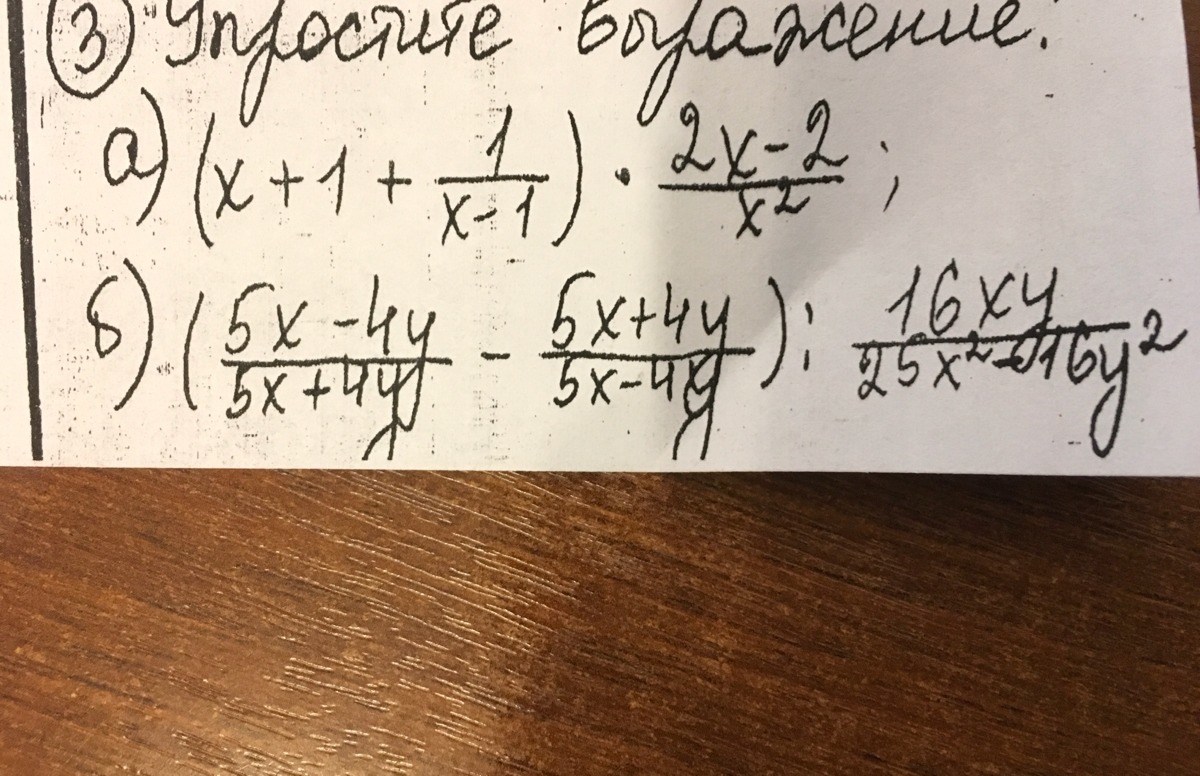 ③ Упростите выражение:
а) (x + 1 + \frac{1}{x-1}) · \frac{2x-2}{x²} ;
б) (\frac{5x-4y}{5x+4y} - \frac{5x+4y}{5x-4y}) : \frac{16xy}{25x²-16y²}